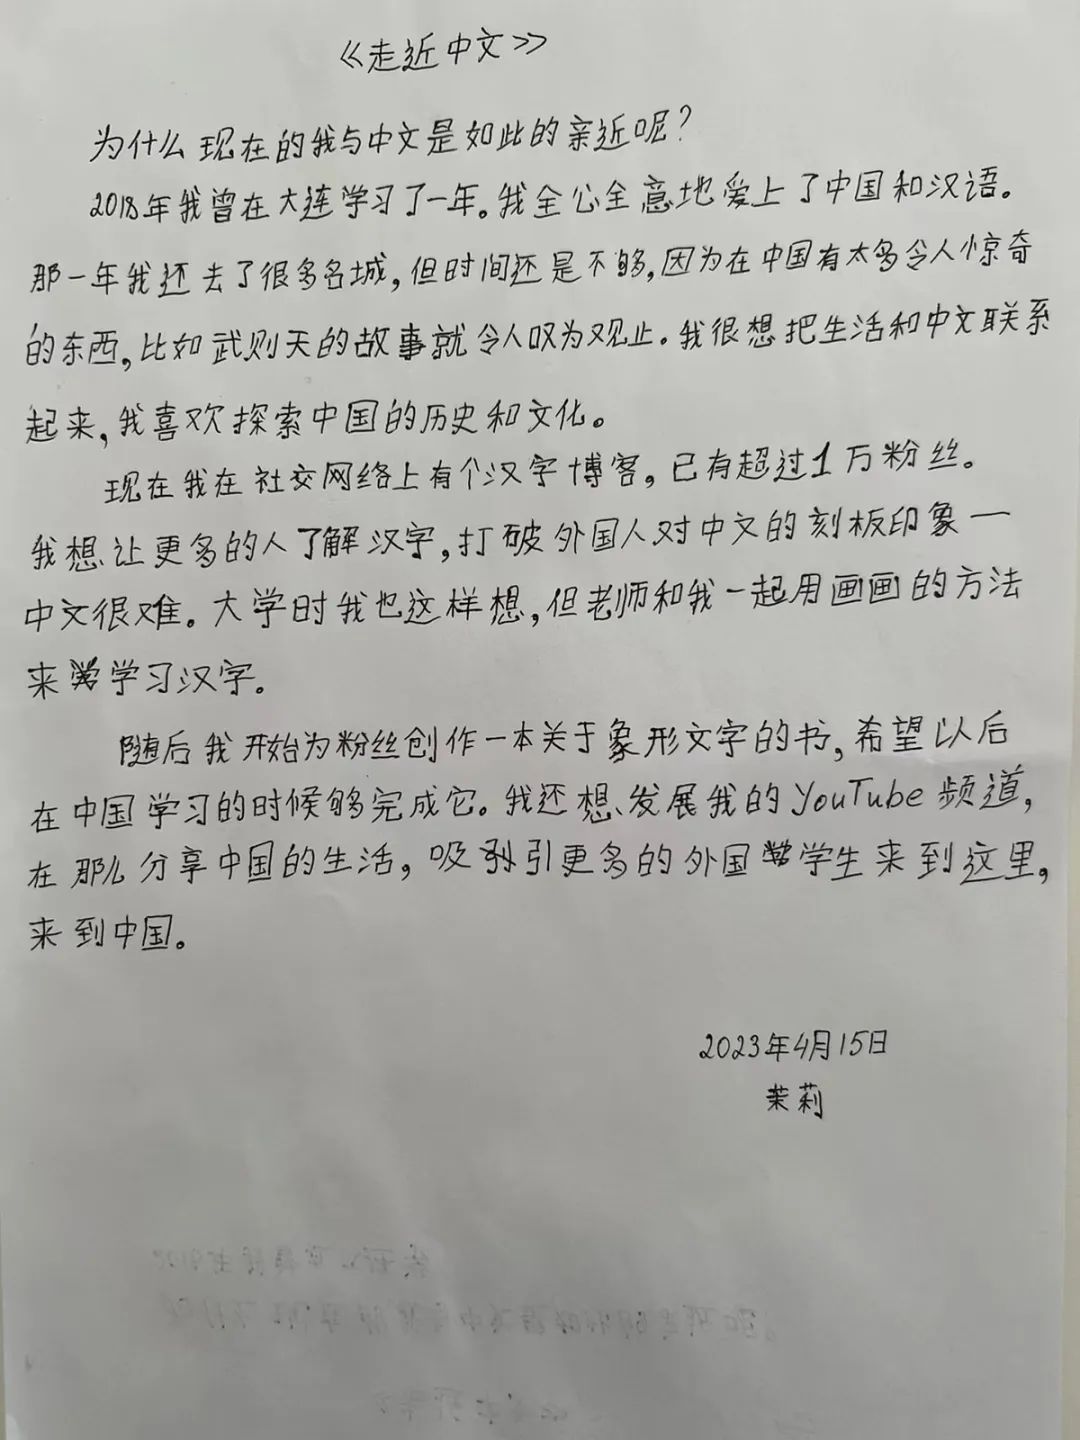 《走近中文》
为什么现在的我与中文是如此的亲近呢？
2018年我曾在大连学习了一年。我全公全意地爱上了中国和汉语。
那一年我还去了很多名城，但时间还是不够，因为在中国有太多令人惊奇
的东西，比如武则天的故事就令人叹为观止。我很想把生活和中文联系
起来，我喜欢探索中国的历史和文化。
现在我在社交网络上有个汉字博客，已有超过1万粉丝。
我想让更多的人了解汉字，打破外国人对中文的刻板印象一
中文很难。大学时我也这样想，但老师和我一起用画画的方法
来学习汉字。
随后我开始为粉丝创作一本关于象形文字的书，希望以后
在中国学习的时候够完成它。我还想发展我的YouTube频道，
在那么分享中国的生活，吸引更多的外国学生来到这里，
来到中国。
2023年4月15日
茉莉